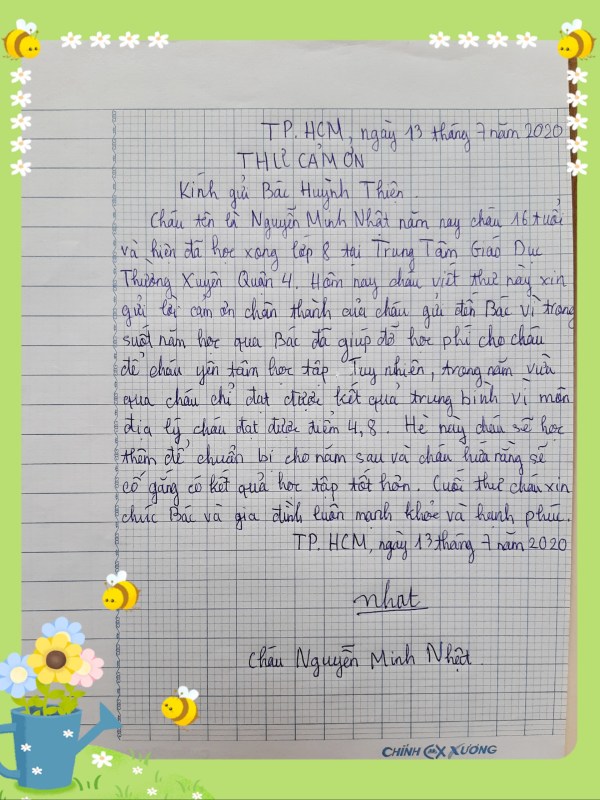 TP. HCM, ngày 13 tháng 7 năm 2020
THƯ CẢM ƠN
Kính gửi Bác Huỳnh Thiên.
Cháu tên là Nguyễn Minh Nhật năm nay cháu 16 tuổi
và hiện đã học xong lớp 8 tại Trung Tâm Giáo Dục
Thường Xuyên Quận 4. Hôm nay cháu viết thư này xin
gửi lời cảm ơn chân thành của cháu gửi đến Bác vì trong
suốt năm học qua Bác đã giúp đỡ học phí cho cháu
để cháu yên tâm học tập. Tuy nhiên, trong năm vừa
qua cháu chỉ đạt được kết quả trung bình vì môn
địa lý cháu đạt được điểm 4,8. Hè này cháu sẽ học
thêm để chuẩn bị cho năm sau và cháu hứa rằng sẽ
cố gắng có kết quả học tập tốt hơn. Cuối thư cháu xin
chúc Bác và gia đình luôn mạnh khỏe và hạnh phúc.
TP. HCM, ngày 13 tháng 7 năm 2020
nhat
Cháu Nguyễn Minh Nhật.
CHÍNH CX XƯƠNG